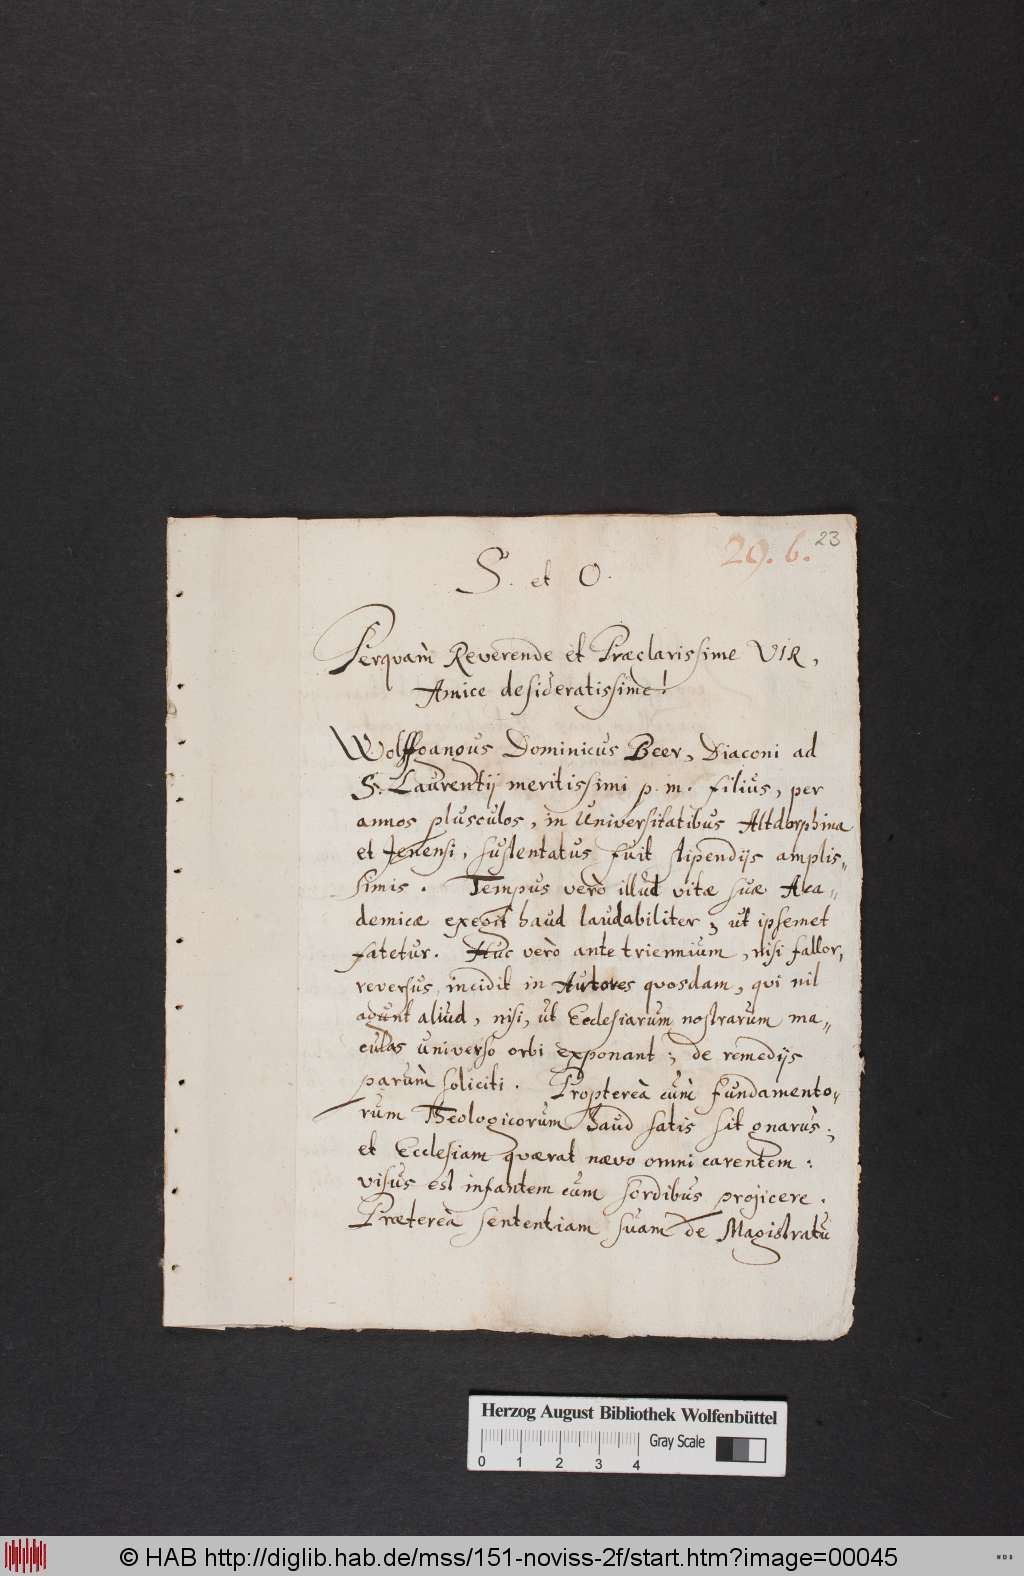 29. 6. 23
S. et O.
Perquàm Reverende et Præclarissime VIR,
Amice desideratissime!
Wolffgangus Dominicus Beer, Diaconi ad
S. Laurentij meritissimi p. m. filius, per
annos plusculos, in Universitatibus Altdorphina
et Jenensi, sustentatus fuit stipendijs amplis„
simis. Tempus verò illud vitæ suæ Aca„
demicæ exegit haud laudabiliter, ut ipsemet
fatetur. Huc verò ante triennium, nisi fallor,
reversus, incidit in Autores quosdam, qui nil
agunt aliud, nisi, ut Ecclesiarum nostrarum ma„
culas universo orbi exponant; de remedijs
parùm soliciti. Propterea cùm fundamento„
rum Theologicorum haud satis sit gnarus;
et Ecclesiam quærat nævo omni carentem:
visus est infantem cum sordibus projicere.
Præterea sententiam suam de Magistratu
Herzog August Bibliothek Wolfenbüttel
Gray Scale
0 1 2 3 4
© HAB http://diglib.hab.de/mss/151-noviss-2f/start.htm?image=00045